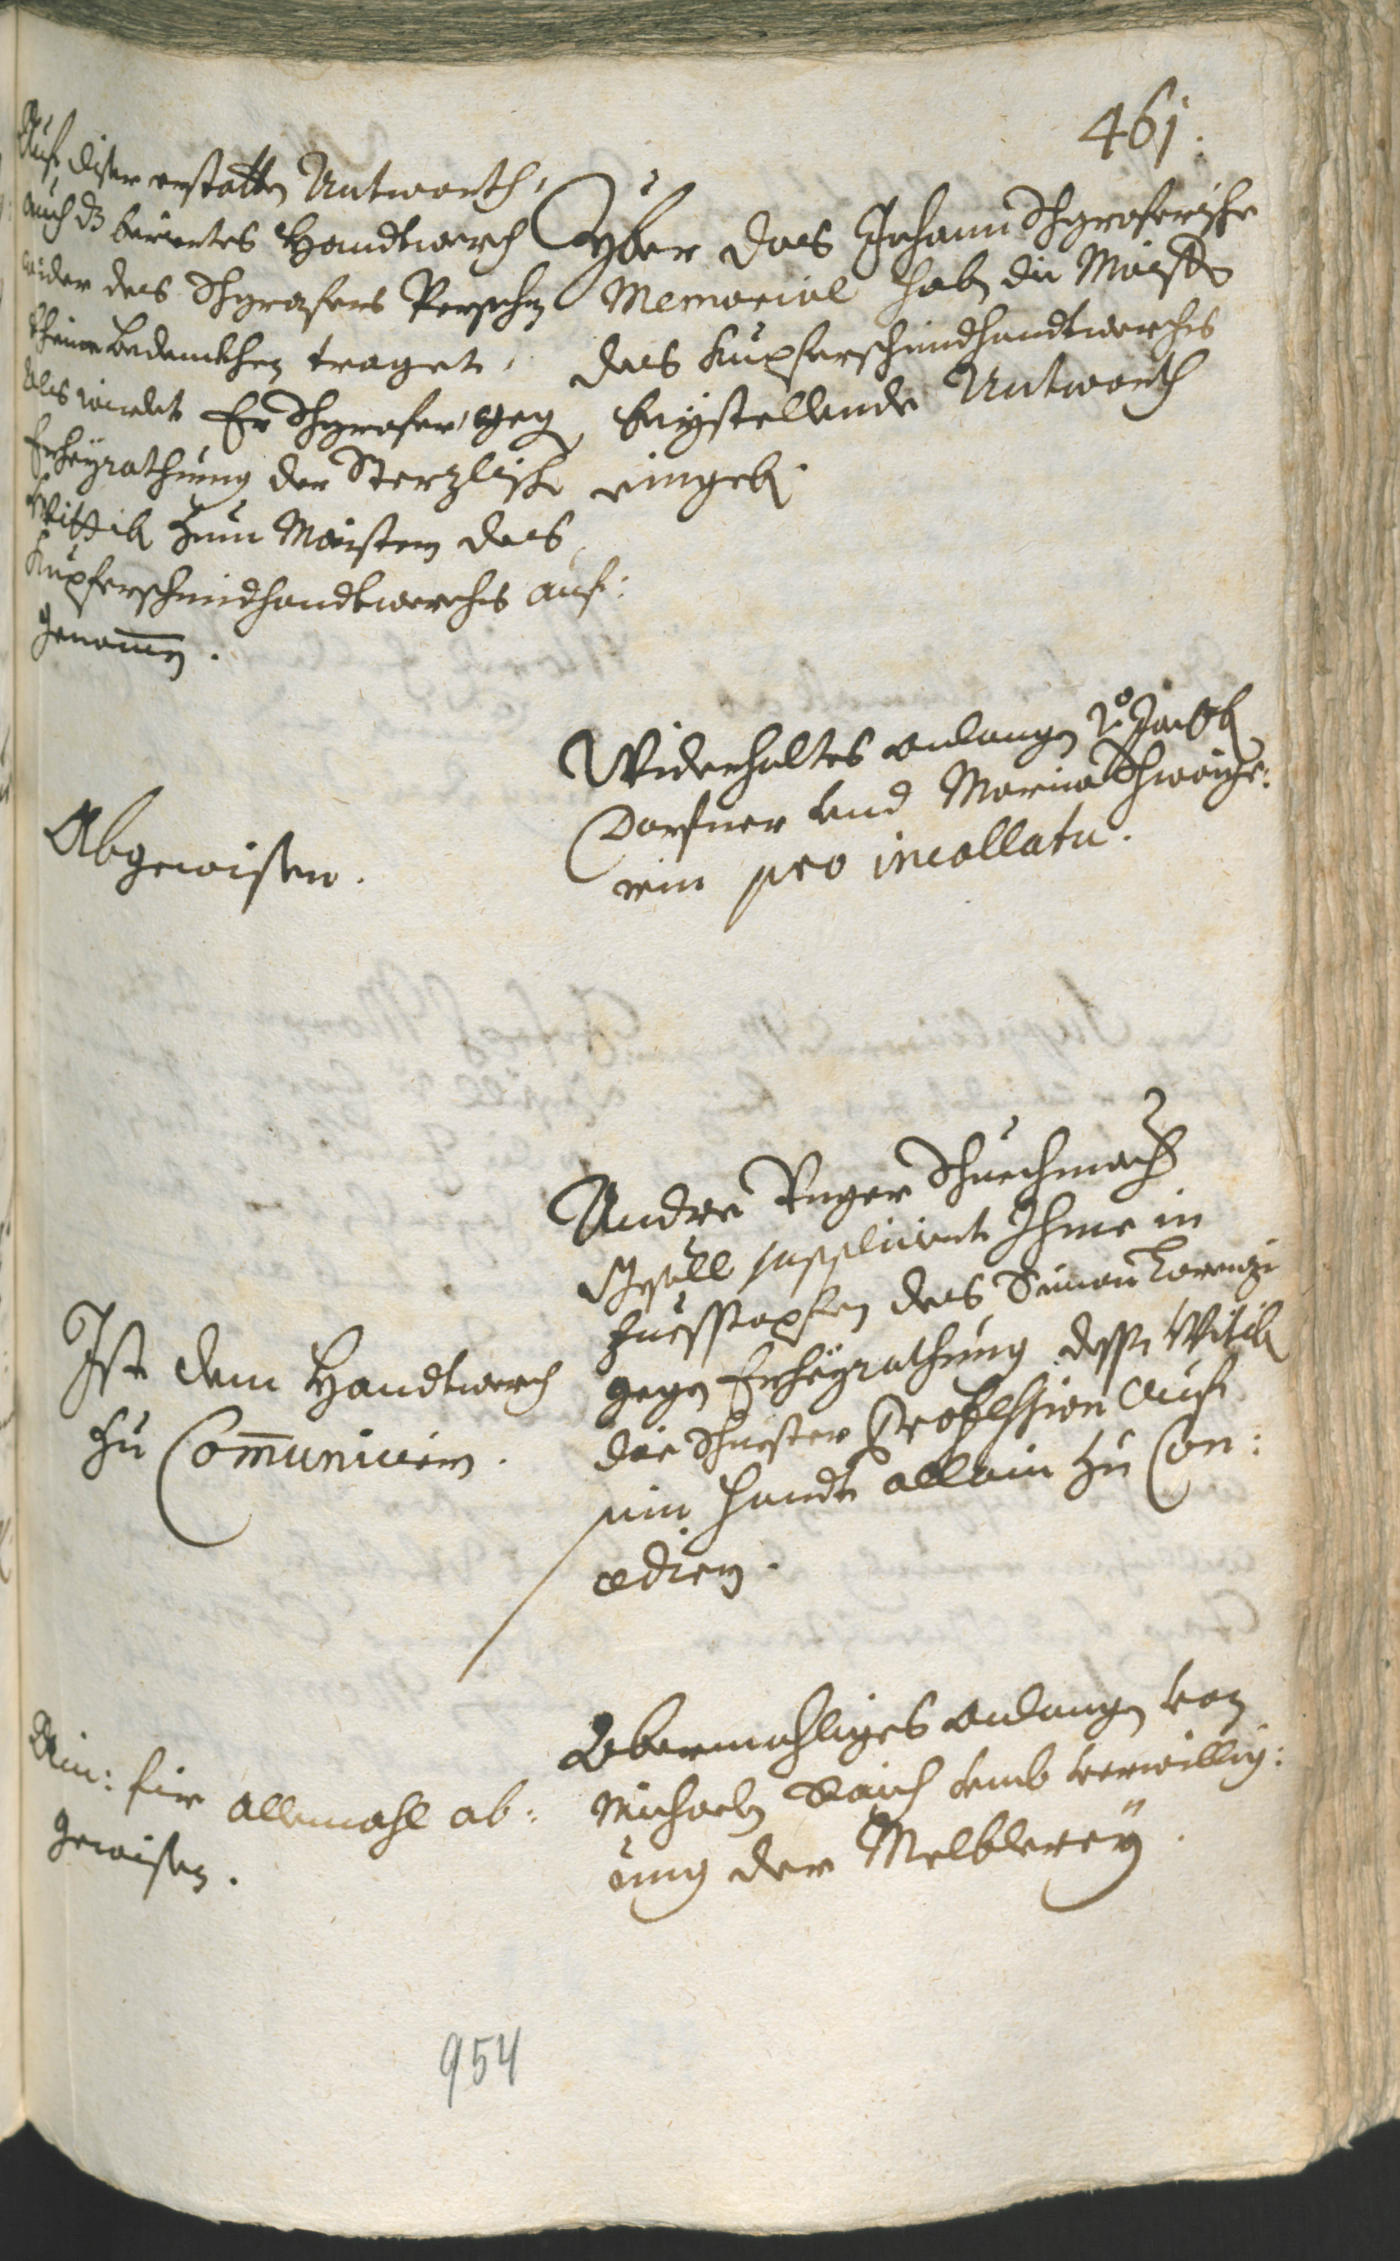 461.
Auf diser erstatten Antworth,
auch dz beriertes Handtwerch
wider des Schgrafers Persohn
kheine bedenkhen traget,
Als wirdet Er Schgrafer gegen
Erheyrathung der Sterzlische
Wittib zum Maister des
Kupferschmidhandtwerchs auf:
genomen.
Yber das Johann Schgraferische
Memorial habe die Maister
des Kupferschmidhandtwerchs
beystellende Antworth
eingeben.
Abgewisen.
Widerholtes anlangen Jacob
Dorfner und Maria Schwaige:
rin pro incollatu.
Ist dem Handtwerch
zu Comunicirn.
Andre Unger Schuechmacher
Gsöll supplicirt Ihme in
Fuesstapfen des Simon Lorenzi
gegen Erheyrathung dessen Witib
die Schuester Profession auf
ein handt allein zu Con:
cedirn.
Ain: für allemahl ab:
gewisen.
Abermahliges anlangen von
Michaeln Raich umb verwillig:
ung der Melblerey.
954